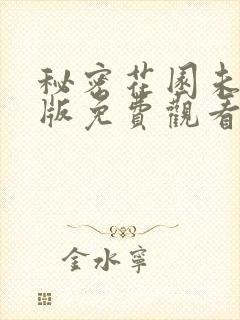 秘密花園未
版免費觀看
金水寧